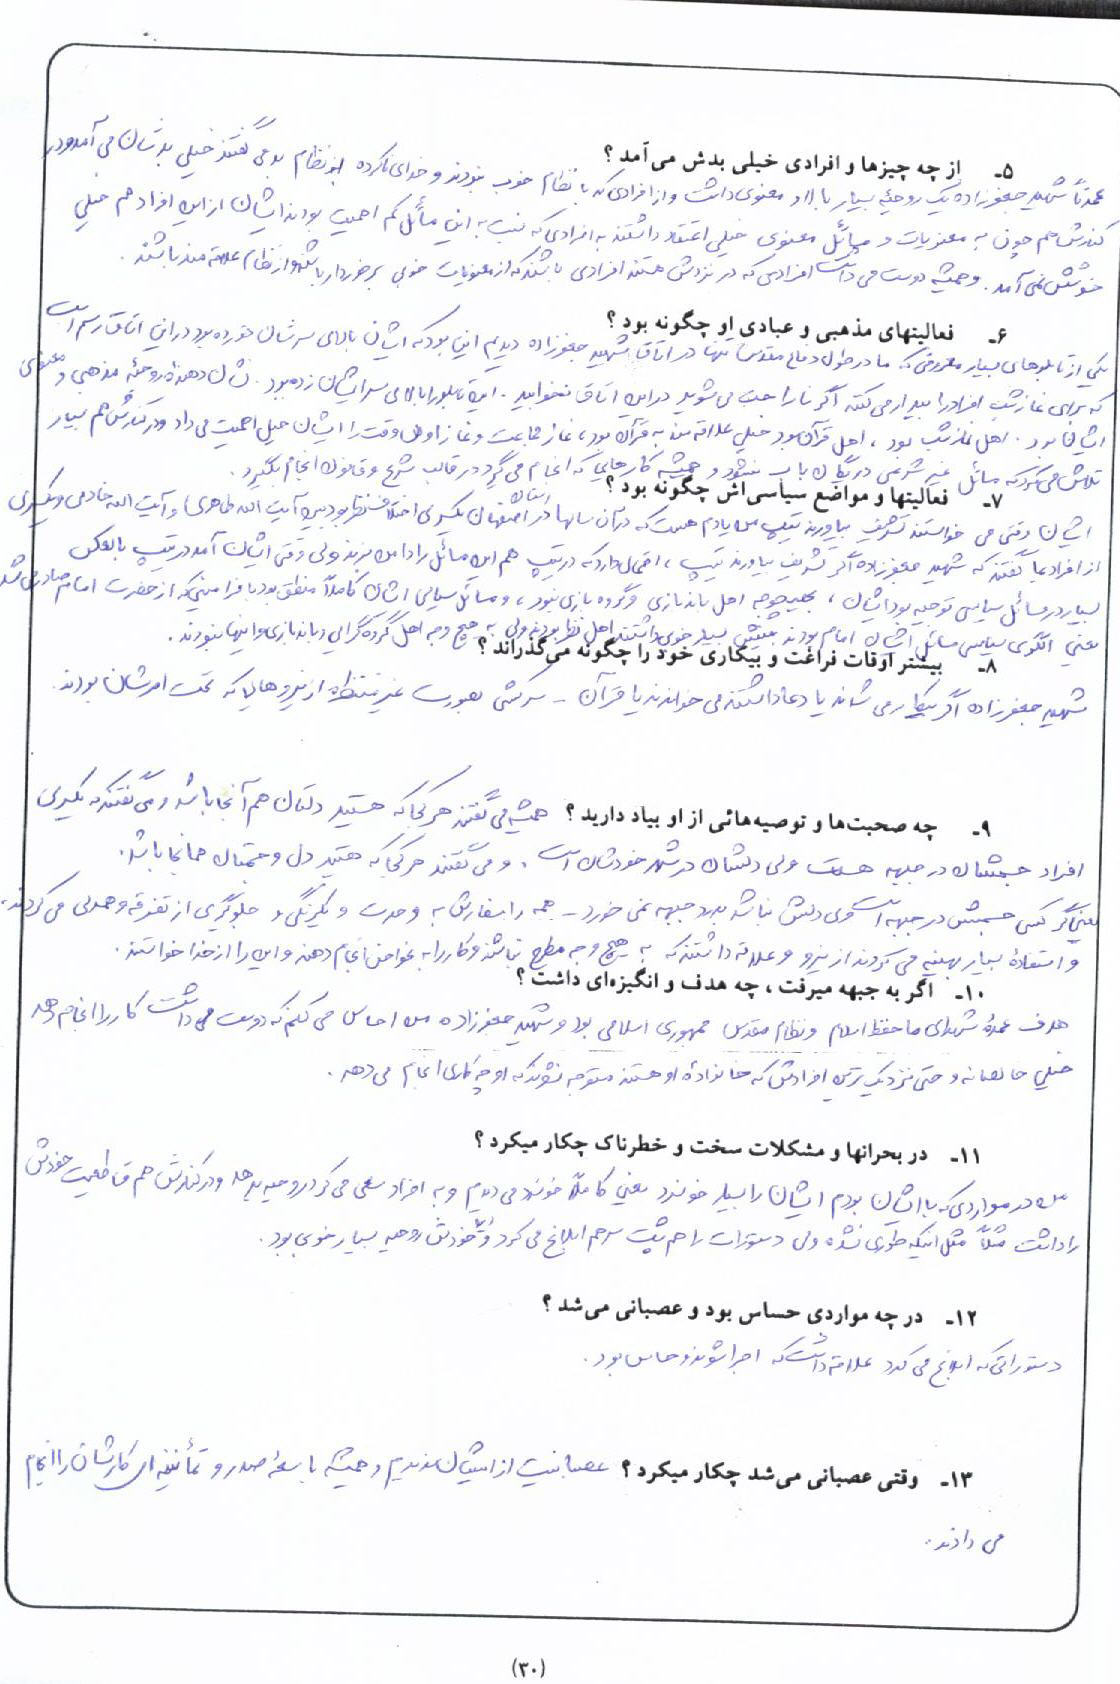 ۵ـ از چه چیزها و افرادی خیلی بدش می‌آمد ؟
عمدتاً شهید جعفرزاده یک روحیه بسیار بالا و معنوی داشت و از افرادی که با نظام خوب نبودند و خدای نکرده به نظام بد می گفتند خیلی بدشان می آمد و در
کنارش هم چون به معنویات و مسائل معنوی خیلی اعتقاد داشتند به افرادی که نسبت به این مسائل کم اهمیت بودند ایشان از این افراد هم خیلی
خوشش نمی آمد . و همیشه دوست می داشت افرادی که در نزدش هستند افرادی باشند که از معنویات خوبی برخوردار باشند و از نظام علاقه مند باشند .
۶ـ فعالیتهای مذهبی و عبادی او چگونه بود ؟
یکی از تابلوهای بسیار معروفی که ما در طول دفاع مقدس تنها در اتاق شهید جعفرزاده دیدیم این بود که ایشان بالای سرشان خورده بود در این اتاق رسم است
که برای نماز شب افراد را بیدار می کنند اگر ناراحت می شوید در این اتاق نخوابید . این تابلو را بالای سر ایشان زده بود . نشان دهندۀ روحیۀ مذهبی و معنوی
ایشان بود . اهل نماز شب بود ، اهل قرآن بود خیلی علاقه مند به قرآن بود ، نماز جماعت و نماز اول وقت را ایشان خیلی اهمیت می داد و در کنارش هم بسیار
تلاش می کرد که مسائل غیر شرعی در یگان باب نشود و همیشه کارهایی که انجام می گیرد در قالب شرع و قانون انجام بگیرد .
۷ـ فعالیتها و مواضع سیاسی‌اش چگونه بود ؟
ایشان وقتی می خواستند تشریف بیاورند تیپ من یادم هست که در آن سالها در استان اصفهان یکسری اختلاف نظر بود بین آیت الله طاهری و آیت الله خادمی و یکسری
از افراد بما گفتند که شهید جعفرزاده اگر تشریف بیاورند تیپ ، احتمال دارد که در تیپ هم این مسائل را دامن بزنند ولی وقتی ایشان آمد در تیپ بالعکس
بسیار در مسائل سیاسی توجیه بود ایشان ، بهیچوجه اهل باندبازی و گروه بازی نبود ، و مسائل سیاسی ایشان کاملاً منطبق بود با فرامینی که از حضرت امام صادر می شد
یعنی الگوی سیاسی مسائل ایشان امام بودند بینش بسیار خوبی داشتند اهل نظر بودند ولی به هیچ وجه اهل گروه گرایی و باندبازی و اینها نبودند .
۸ـ بیشتر اوقات فراغت و بیکاری خود را چگونه می‌گذراند ؟
شهید جعفرزاده اگر بیکار می شدند یا دعا داشتند می خواندند یا قرآن ـ سرکشی بصورت غیر منتظره از نیروهایی که تحت امرشان بودند .
۹ـ چه صحبت‌ها و توصیه‌هائی از او بیاد دارید ؟ همیشه می گفتند هر کجا که هستید دلتان هم آنجا باشد و می گفتند که یکسری
افراد جسمشان در جبهه هست ولی دلشان در شهر خودشان است . و می گفتند هر کجا که هستید دل و جسمتان همانجا باشد .
یعنی اگر کسی جسمش در جبهه است ولی دلش نباشد بدرد جبهه نمی خورد ـ همه را سفارش به وحدت و یکرنگی و جلوگیری از تفرقه و همدلی می کردند .
و استفادۀ بسیار بهینه می کردند از نیرو و علاقه داشتند که به هیچ وجه مطرح نباشند و کار را به نحو احسن انجام دهند و این را از خدا خواستند .
۱۰ـ اگر به جبهه میرفت ، چه هدف و انگیزه‌ای داشت ؟
هدف عمدۀ شهدای ما حفظ اسلام و نظام مقدس جمهوری اسلامی بود و شهید جعفرزاده من احساس می کنم که دوست می داشت کار را انجام دهد
خیلی خالصانه و حتی نزدیک ترین افرادش که خانوادۀ او هستند متوجه نشوند که او چه کاری انجام می دهد .
۱۱ـ در بحرانها و مشکلات سخت و خطرناک چکار میکرد ؟
من در مواردی که با ایشان بودم ایشان را بسیار خونسرد یعنی کاملاً خونسرد می دیدم و به افراد سعی می کرد روحیه بدهد و در کنارش هم قاطعیت خودش
را داشت مثلاً مثل اینکه طوری نشده ولی دستورات را هم پشت سر هم ابلاغ می کرد و خودش روحیه بسیار خوبی بود .
۱۲ـ در چه مواردی حساس بود و عصبانی می‌شد ؟
دستوراتی که ابلاغ می کرد علاقه داشت که اجرا شوند و حساس بود .
۱۳ـ وقتی عصبانی می‌شد چکار میکرد ؟ عصبانیت از ایشان ندیدیم و همیشه با سعۀ صدر و کارشان را انجام
می دادند .
(۳۰)